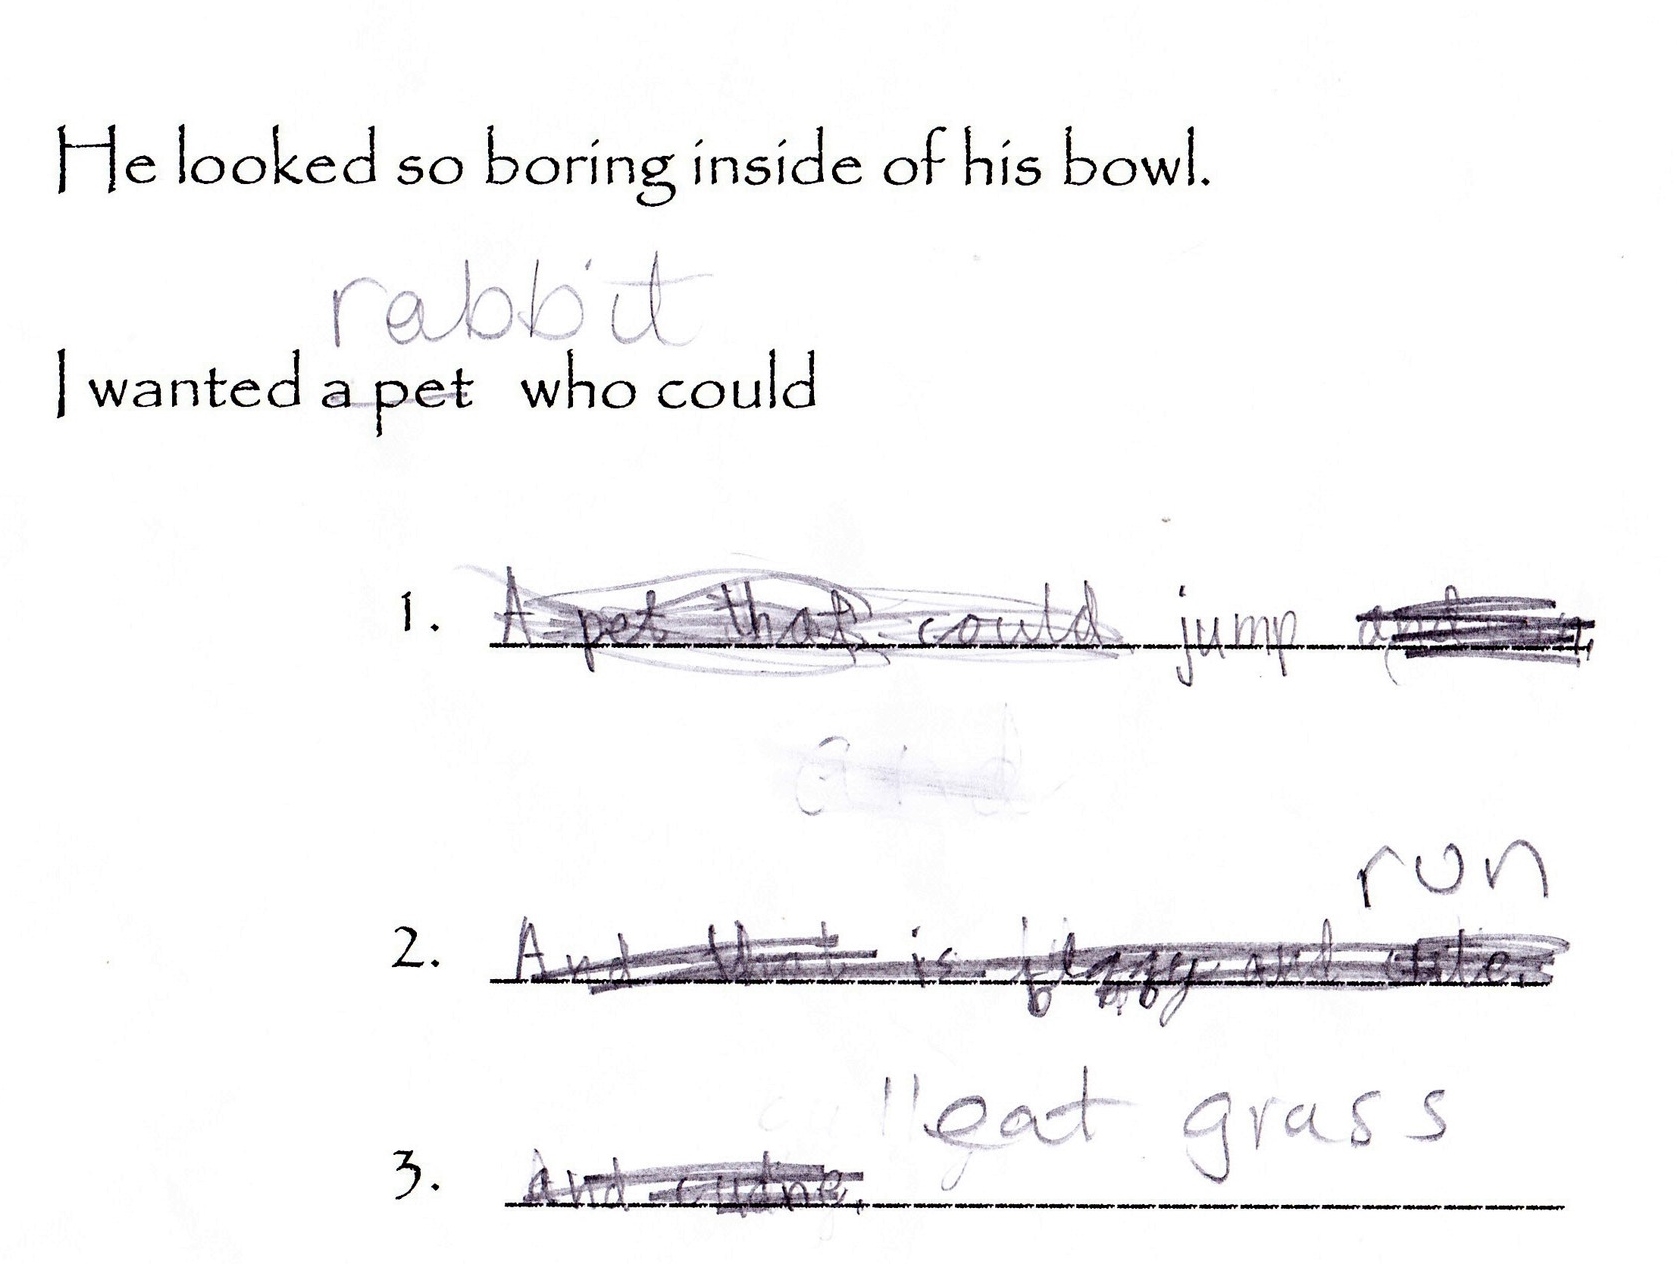 He looked so boring inside of his bowl.
rabbit
I wanted a pet who could
1. A pet that could jump and
and
run
2. And that is and cute.
eat grass
3. And